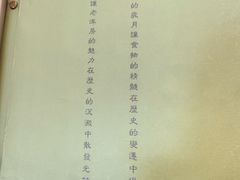 的歲月讓食物的精髓在歷史的變遷中
讓老洋房的魅力在歷史的沉澱中散發光